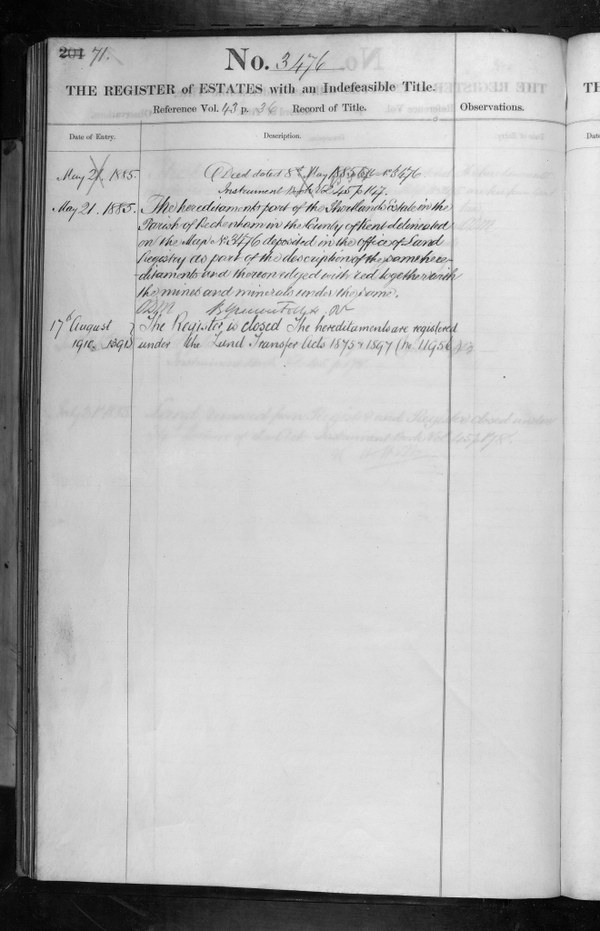 204 71.
No. 3476
THE REGISTER of ESTATES with an Indefeasible Title.
Reference Vol. 43 p. 36 Record of Title.
Observations.
Date of Entry.
Description.
May 21. 1885.
Deed dated 8th May 1885 3476
Instrument 82 457 147.
May 21. 1885.
The hereditaments part of the Shortlands Estate in the
Parish of Beckenham in the County of Kent delineated
on the Map No. 3476 deposited in the office of Land
Registry as part of the description of the same here-
-ditaments and thereon edged with red together with
the mines and minerals under the same.
17th August
1910
The Register is closed The hereditaments are registered
under the Land Transfer Acts 1875 & 1897
TH
Date